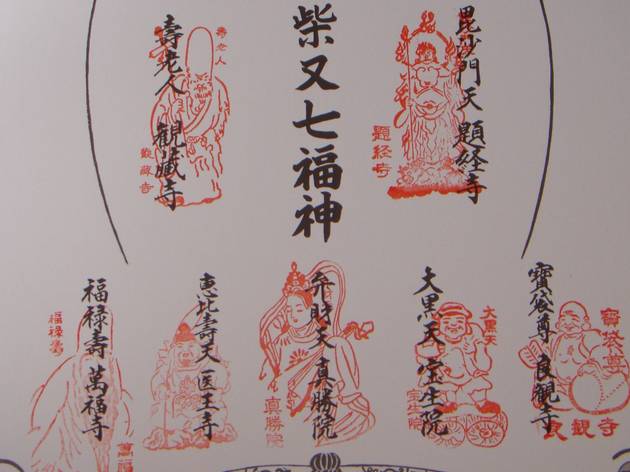 柴又七福神
毘沙門天 題経寺
題経寺
壽老人 観蔵寺
壽老人
観蔵寺
寶袋尊 良観寺
寶袋尊
良観寺
大黒天 宝生院
大黒天
宝生院
弁財天 真勝院
真勝院
恵比壽天 医王寺
福禄壽 萬福寺
福禄壽
萬福